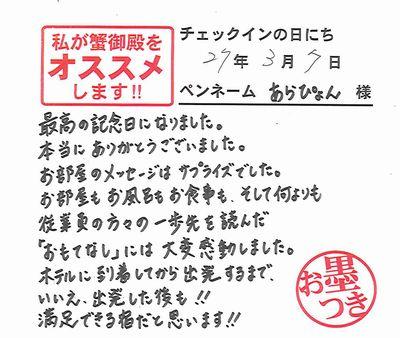 私が蟹御殿を
オススメ
します!!
チェックインの日にち
27年 3月 7日
ペンネーム あらぴょん 様
最高の記念日になりました。
本当にありがとうございました。
お部屋のメッセージはサプライズでした。
お部屋もお風呂もお食事も、そして何よりも
従業員の方々の一歩先を読んだ
「おもてなし」には大変感動しました。
ホテルに到着してから出発するまで、
いいえ、出発した後も!!
満足できる宿だと思います!!
お墨つき